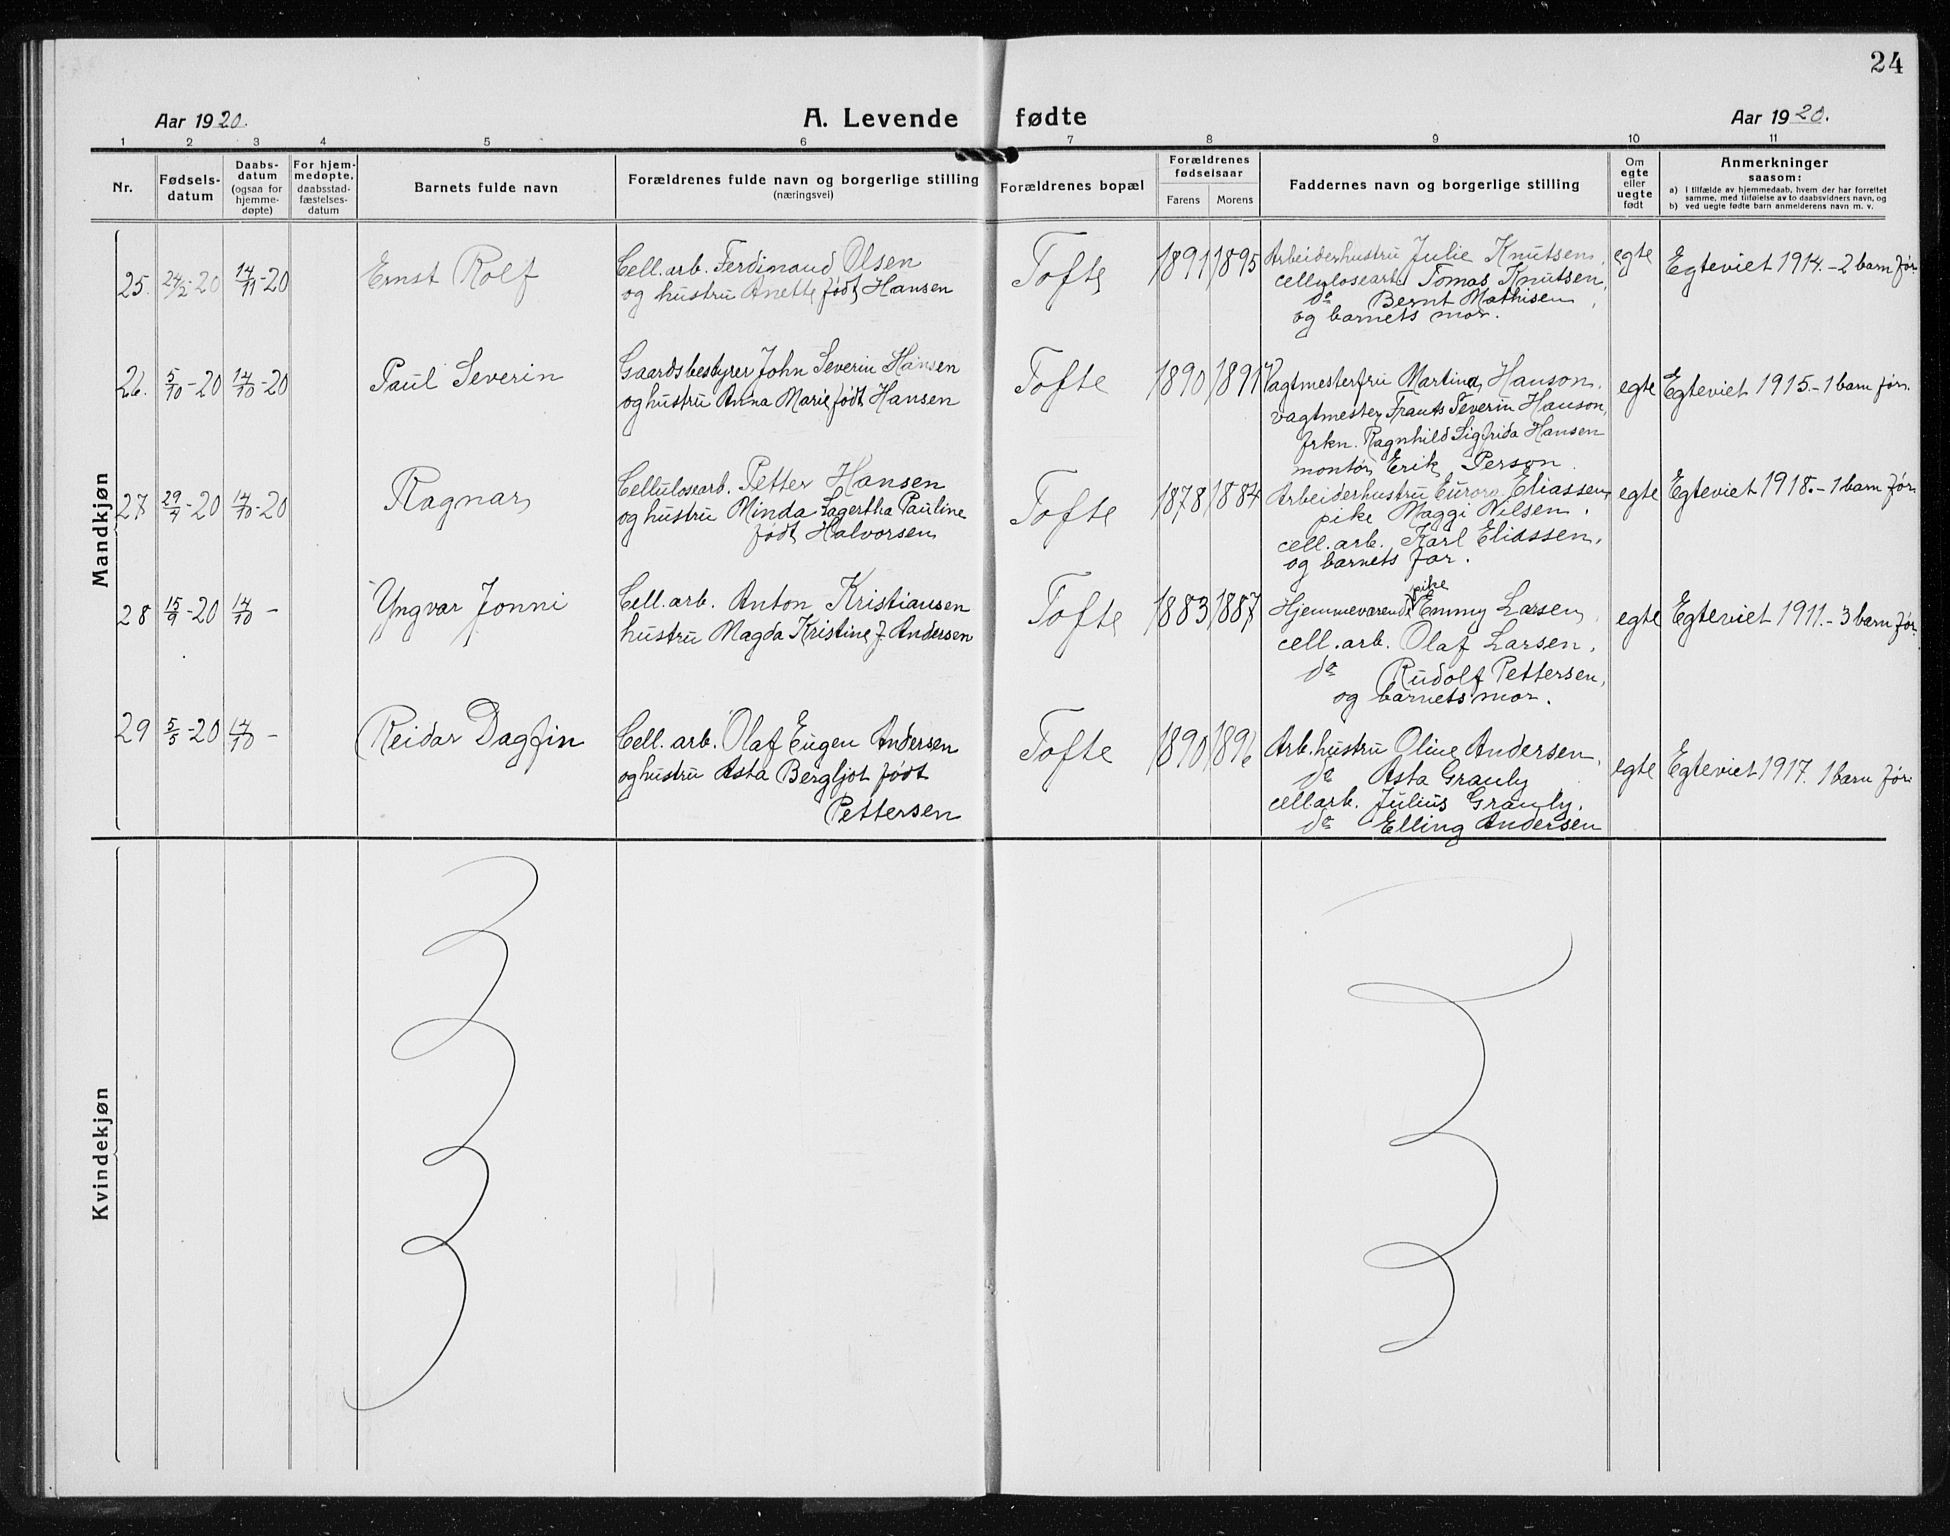 24
Aar 1920. A. Levende fødte Aar 1920.
1 2 3 4 5 6 7 8 9 10 11
Nr.
Fødsels-
datum
Daabs-
datum
(ogsaa for
hjemme-
døpte)
For hjem-
medøpte,
daabsstad-
fæstelses-
datum
Barnets fulde navn
Forældrenes fulde navn og borgerlige stilling
(næringsvei)
Forældrenes bopæl
Forældrenes
fødselsaar
Farens Morens
Faddernes navn og borgerlige stilling
Om
egte
eller
uegte
født
Anmerkninger
saasom:
a) I tilfælde av hjemmedaab, hvem der har forrettet
samme, med tilføielse av to daabsvidners navn, og
b) ved uegte fødte barn anmelderens navn m. v.
Mandkjøn
25. 24/2-20 14/11-20 Ernst Rolf
Cell. arb. Ferdinand Olsen
og hustru Anette født Hansen
Tofte 1891 1895
Arbeiderhustru Julie Knutsen,
cellulosearb. Tomas Knutsen,
do Bernt Mathisen,
og barnets mor.
egte Egteviet 1914.-2 barn før
26. 5/10-20 14/10-20 Paul Severin
Gaardsbestyrer John Severin Hansen
og hustru Anna Marie født Hansen
Tofte 1890 1891
Vagtmesterfru Martina Hanson.
vagtmester Frants Severin Hanson,
frkn. Ragnhild Sigfrida Hansen
montør Erik Person.
egte Egteviet 1915.-1 barn før.
27 29/7-20 14/10-20 Ragnar
Cellulosearb. Petter Hansen
og hustru Minda Lagertha Pauline
født Halvorsen
Tofte 1878 1884
Arbeiderhustru Eurora Eliassen,
pike Maggi Nilsen.
cell. arb. Karl Eliassen.
og barnets far.
egte Egteviet 1918.-1 barn før
28 15/9-20 14/10 - Yngvar Jonni
Cell. arb. Anton Kristiansen
hustru Magda Kristine f Andersen
Tofte 1883 1887
pike
Hjemmeværende Emmy Larsen,
cell. arb. Olaf Larsen,
do Rudolf Pettersen,
og barnets mor.
egte Egteviet 1911.-3 barn før.
29 5/5-20 14/10 - Reidar Dagfin
Cell. arb. Olaf Eugen Andersen
og hustru Asta Bergljot født
Pettersen
Tofte 1890 1896
Arb. hustru Oline Andersen,
do Asta Granly
cell arb. Julius Granly.
do Elling Andersen
egte Egteviet 1917. 1 barn før.
Kvindekjøn